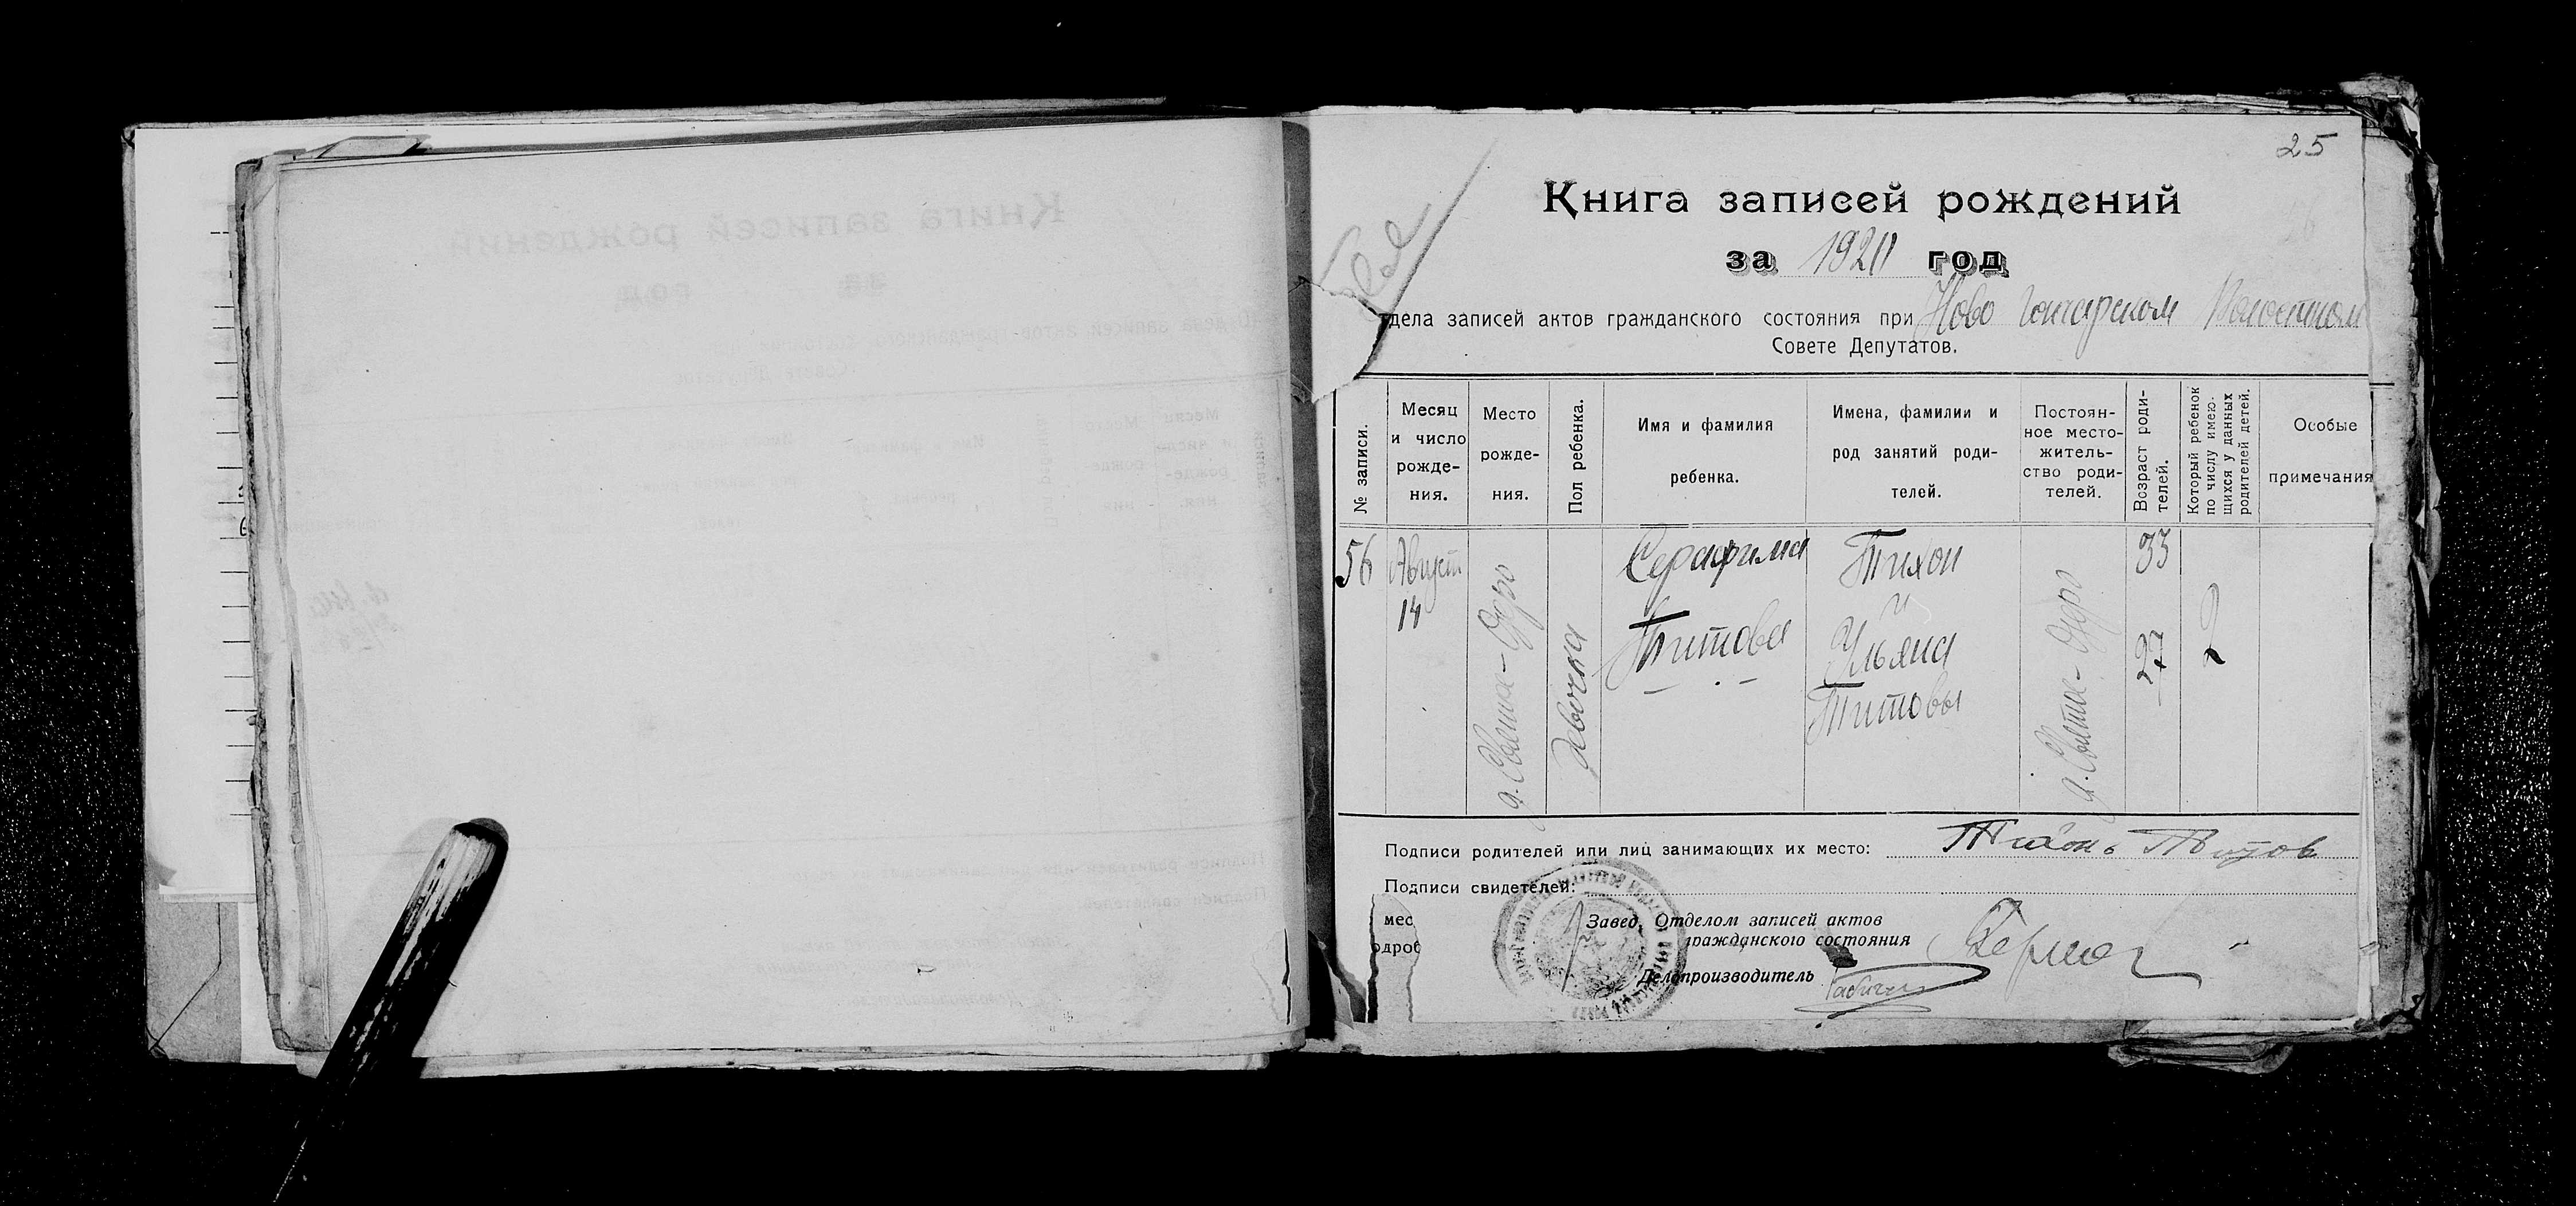 25
Книга записей рождений
за 1920 год
дела записей актов гражданского состояния при Ново Гончарском Волостном
Совете Депутатов.
№ записи.
Месяц и число рожде-ния.
Место рожде-ния.
Пол ребенка.
Имя и фамилия ребенка.
Имена, фамилии и род занятий роди-телей.
Постоян-ное место-житель-ство роди-телей.
Возраст роди-телей.
Который ребенок по числу имею-щихся у данных родителей детей.
Особые примечания
56
Август
14
д. Свято-Озеро
девочка
Серафима
Титова
Тихон
и
Ульяна
Титовы
д. Свято-Озеро
33
27
2
Подписи родителей или лиц занимающих их место: Тихонъ Титов
Подписи свидетелей:
мес
одроб
Завед. Отделом записей актов
гражданского состояния
Делопроизводитель